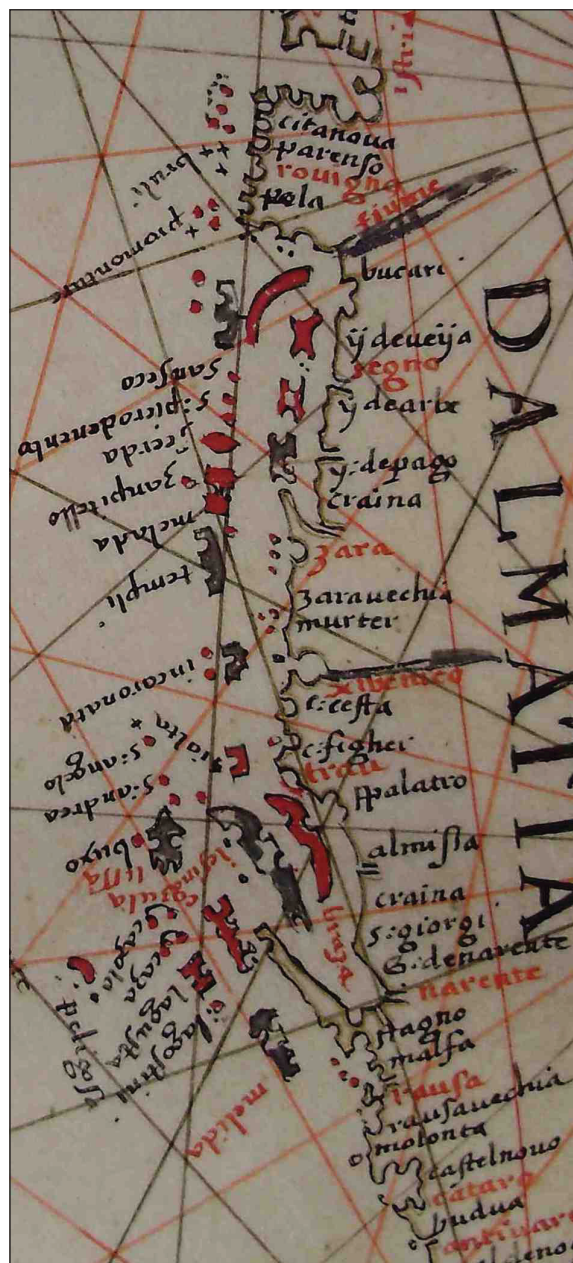 istria
citanoua
parenso
rouigno
pola
fiume
bucari
ÿ deueija
segno
ÿ dearbe
ÿ: depago
craina
zara
zarauechia
murter
c: cesta
c: figher
trau
spalatro
almissa
craina
s: giorgi
G: denarente
narente
stagno
malfa
rausa
rausauechia
molonta
castelnouo
cataro
budua
DALMATIA
bruli
promontore
sanseco
s: pierodenenbo
scerda
zanpitello
melada
templi
incaronata
sialta
s: angelo
s: andrea
buxo
lissa
braza
cazola
caza
lagusta
lagostini
melida